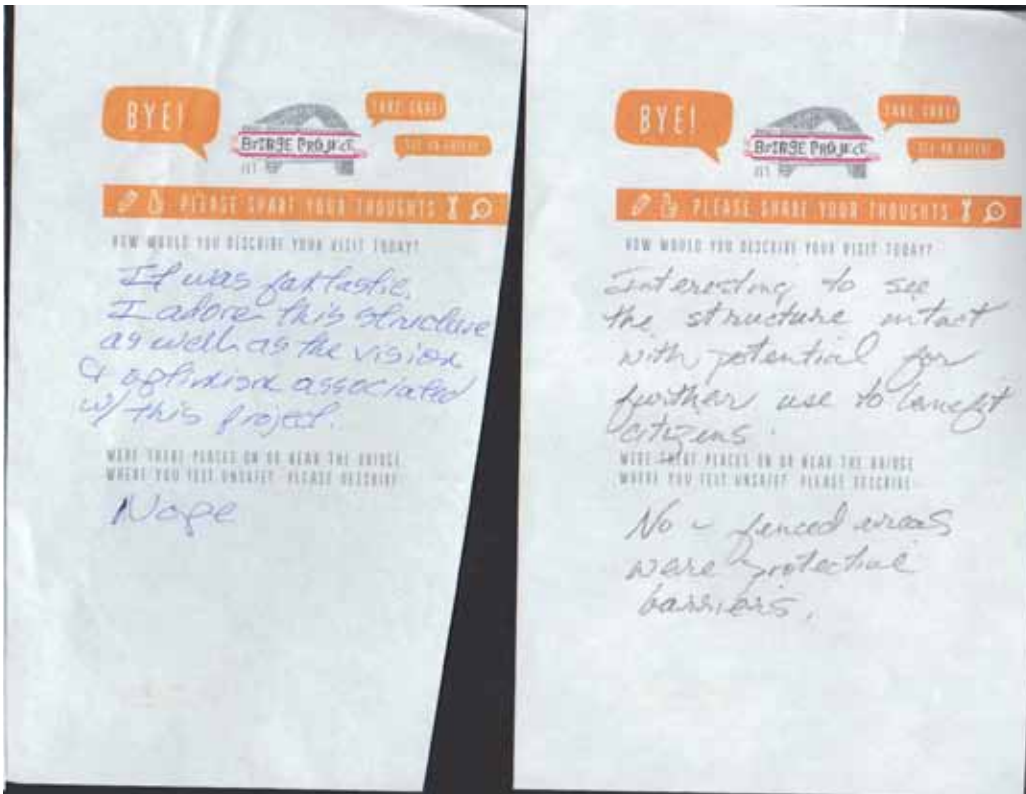 BYE!
TAKE CARE!
BRIDGE PROJECT
PLEASE SHARE YOUR THOUGHTS
HOW WOULD YOU DESCRIBE YOUR VISIT TODAY?
It was fantastic.
I adore this structure
as well as the vision
& optimism associated
w/ this project.
WERE THERE PLACES ON OR NEAR THE BRIDGE
WHERE YOU FELT UNSAFE? PLEASE DESCRIBE:
Nope
BYE!
TAKE CARE!
BRIDGE PROJECT
PLEASE SHARE YOUR THOUGHTS
HOW WOULD YOU DESCRIBE YOUR VISIT TODAY?
Interesting to see
the structure intact
with potential for
further use to benefit
citizens.
WERE THERE PLACES ON OR NEAR THE BRIDGE
WHERE YOU FELT UNSAFE? PLEASE DESCRIBE:
No - fenced areas
were protective
barriers.